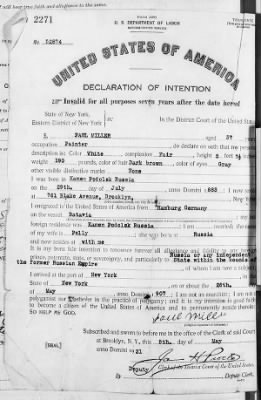 2271
U. S. DEPARTMENT OF LABOR
No. 52874
UNITED STATES OF AMERICA
DECLARATION OF INTENTION
Invalid for all purposes seven years after the date hereof
State of New York,
Eastern District of New York
ss:
In the District Court of the United States
I, PAUL MILLER aged 37
occupation Painter do declare on oath that my personal
description is: Color White complexion Fair height 5 feet
weight 150 pounds, color of hair Dark brown color of eyes Gray
other visible distinctive marks None
I was born in Kamen Podolsk Russia
on the 25th day of July anno Domini 1883
at 761 Blake Avenue, Brooklyn,
I emigrated to the United States of America from Hamburg Germany
on the vessel Batavia
foreign residence was Kamen Podolsk Russia
wife is Polly Russia
and now resides at with me
It is my bona fide intention to renounce forever all allegiance and fidelity to any foreign
prince, potentate, state, or sovereignty, and particularly to Russia or any independent
State within the bounds of
the Former Russian Empire of whom I am now a subject
I arrived at the port of New York
State of New York on or about the 26th
May anno Domini 1907 I am not an anarchist; I am not a
polygamist nor a believer in the practice of polygamy; and it is my intention in good faith
to become a citizen of the United States of America and to permanently reside therein:
SO HELP ME GOD.
Paul Miller
Subscribed and sworn to before me in the office of the Clerk of said Court
at Brooklyn, N. Y., this 5th day of May
anno Domini 1921
[SEAL]
Clerk of the District Court of the United States
Deputy Clerk.